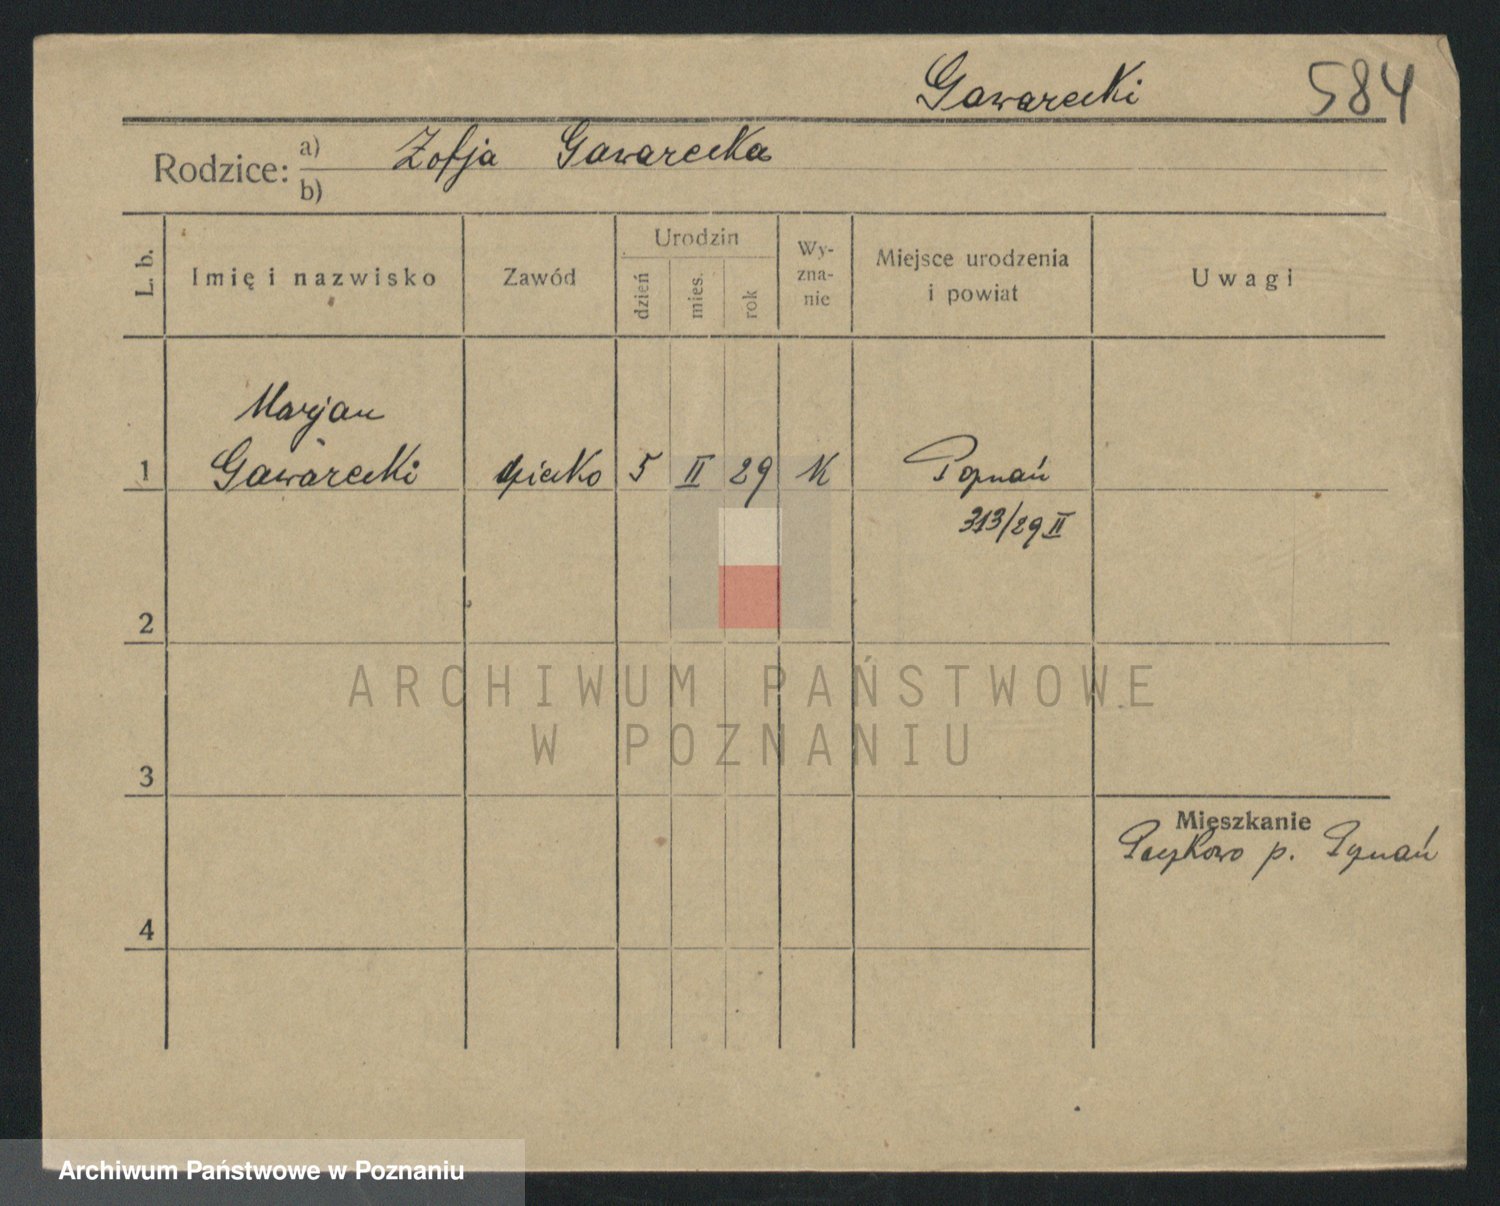 Gawarecki 584
Rodzice: a) Zofja Gawarecka
b)
L. b. Imię i nazwisko Zawód Urodzin dzień mies. rok Wy-zna-nie Miejsce urodzenia i powiat Uwagi
Marjan
1 Gawarecki dziecko 5 II 29 K Poznań
313/29 II
2
ARCHIWUM PAŃSTWOWE
W POZNANIU
3
Mieszkanie
Paczkowo p. Poznań
4
Archiwum Państwowe w Poznaniu